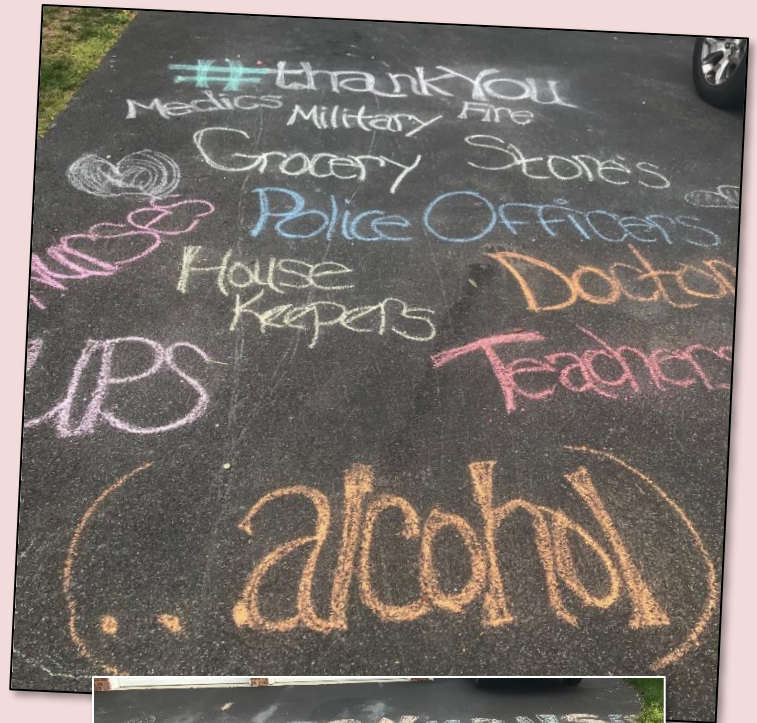 #thankYou
Medics Military Fire
Grocery Stores
Police Officers
House Doctor
Keepers
UPS Teachers
(...alcohol)